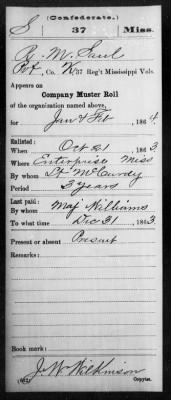 (Confederate.)
S 37 Miss.
R. M. Saul
Pvt, Co. K, 37 Reg't Mississippi Vols.
Appears on
Company Muster Roll
of the organization named above,
for Jan & Feb, 1864.
Enlisted:
When Oct 21, 1863
Where Enterprise Miss
By whom Lt McCurdy
Period 3 years
Last paid:
By whom Maj Williams
To what time Dec 31, 1863
Present or absent Present
Remarks:
Book mark:
J. W. Wilkinson
(642) Copyist.